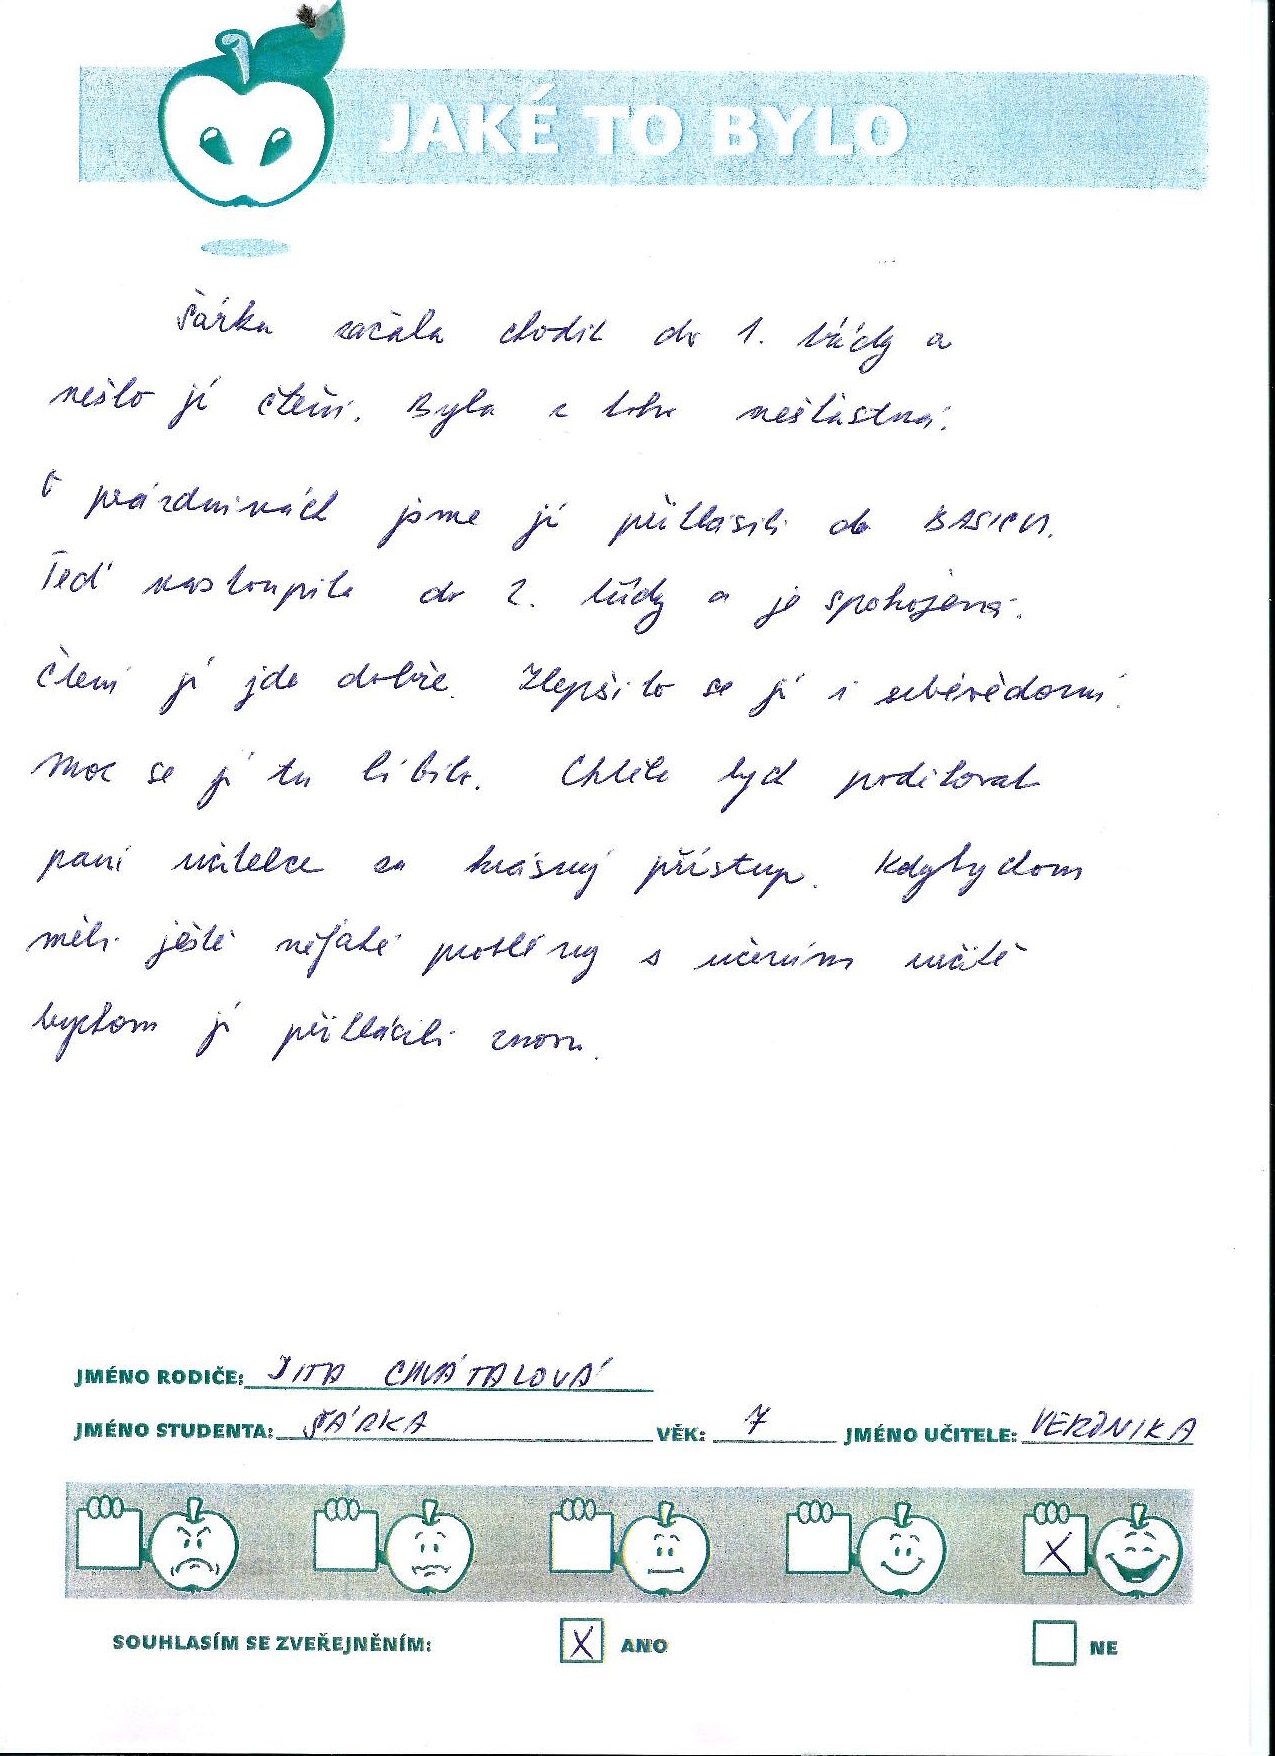 JAKÉ TO BYLO
Šárka začala chodit do 1. třídy a
nešlo jí čtení. Byla z toho nešťastná.
O prázdninách jsme jí přihlásili do BASICU.
Teď nastoupila do 2. třídy a je spokojená.
Čtení jí jde dobře. Zlepšilo se jí i sebevědomí.
Moc se jí tu líbilo. Chtěla bych poděkovat
paní učitelce za krásný přístup. Kdybychom
měli ještě nějaké problémy s učením určitě
bychom jí přihlásili znovu.
JMÉNO RODIČE: JITA CHVÁTALOVÁ
JMÉNO STUDENTA: ŠÁRKA VĚK: 7 JMÉNO UČITELE: VERONIKA
X
SOUHLASÍM SE ZVEŘEJNĚNÍM: X ANO NE